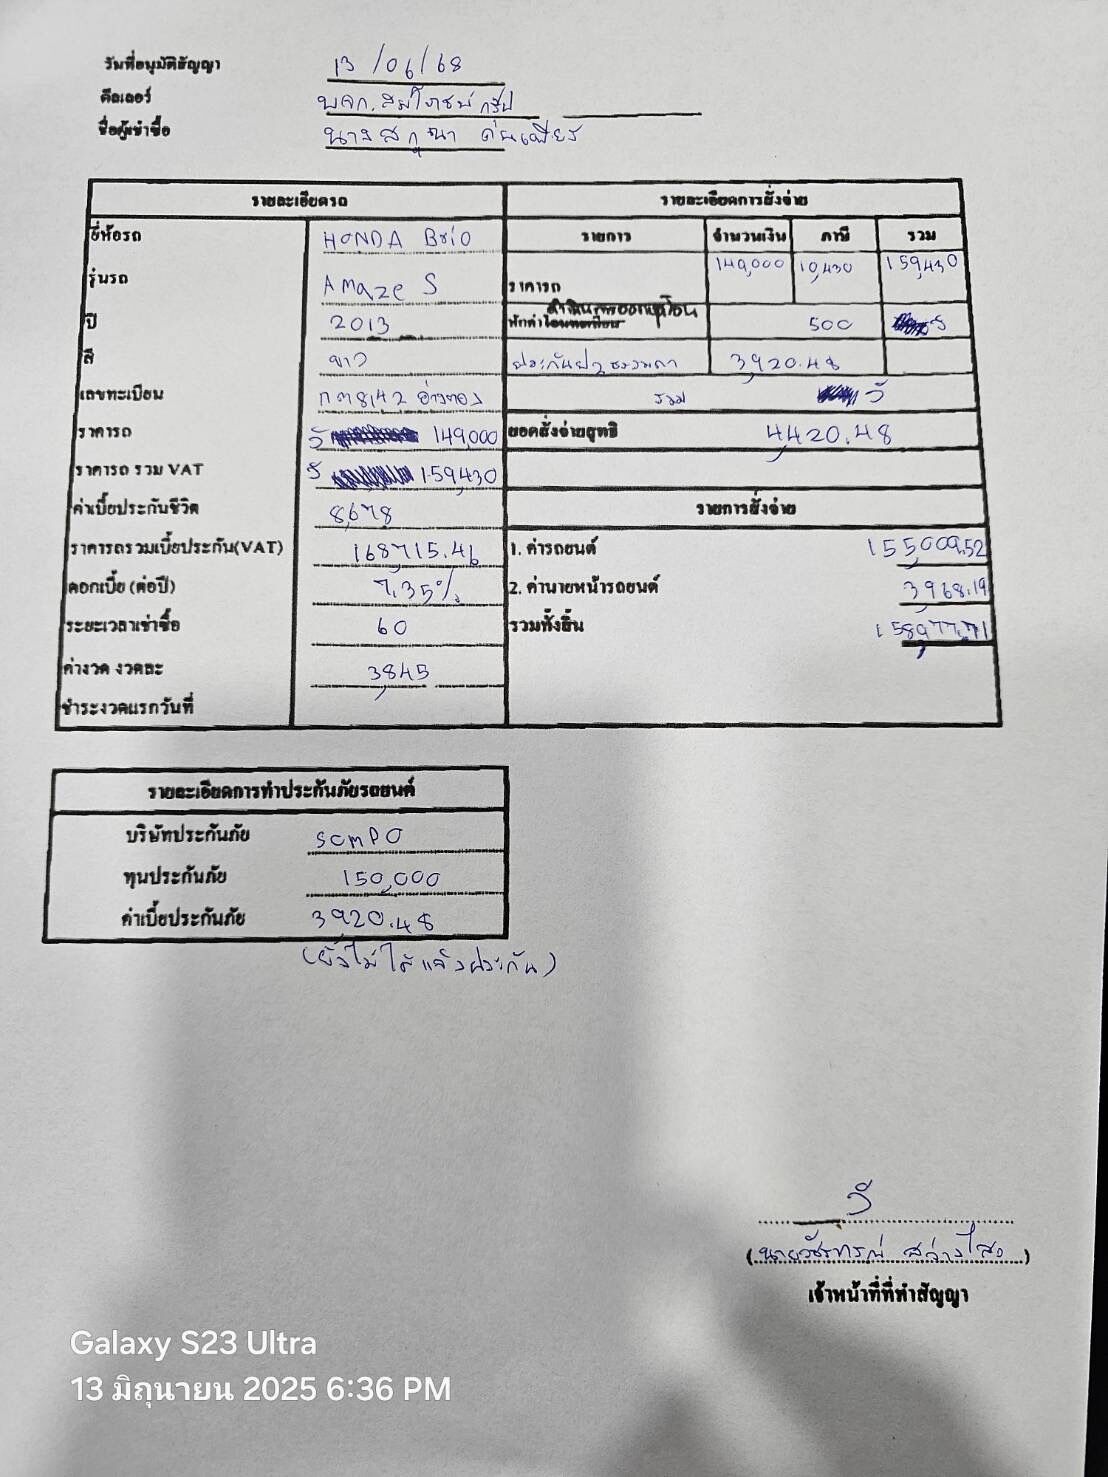 วันที่อนุมัติสัญญา 13/06/68
ดีลเลอร์ หจก.สมโภชน์กรุ๊ป
ชื่อผู้เช่าซื้อ นางสกุณา
รายละเอียดรถ รายละเอียดการสั่งจ่าย
ยี่ห้อรถ HONDA Brio รายการ จำนวนเงิน ภาษี รวม
รุ่นรถ Amaze S ราคารถ 149,000 10,430 159,430
ปี 2013 หักค่า 500
สี ขาว 3,920.48
เลขทะเบียน กต8142 อ่างทอง รวม
ราคารถ 149,000 ยอดสั่งจ่ายสุทธิ 4,420.48
ราคารถ รวม VAT 159,430
ค่าเบี้ยประกันชีวิต 8,678 รายการสั่งจ่าย
ราคารถรวมเบี้ยประกัน(VAT) 168,715.46 1. ค่ารถยนต์ 155,009.52
ดอกเบี้ย (ต่อปี) 7.35% 2. ค่านายหน้ารถยนต์ 3,968.19
ระยะเวลาเช่าซื้อ 60 รวมทั้งสิ้น 158,977.71
ค่างวด งวดละ 3,845
ชำระงวดแรกวันที่
รายละเอียดการทำประกันภัยรถยนต์
บริษัทประกันภัย SOMPO
ทุนประกันภัย 150,000
ค่าเบี้ยประกันภัย 3,920.48
(ยังไม่ได้แจ้งประกัน)
เจ้าหน้าที่ที่ทำสัญญา
Galaxy S23 Ultra
13 มิถุนายน 2025 6:36 PM